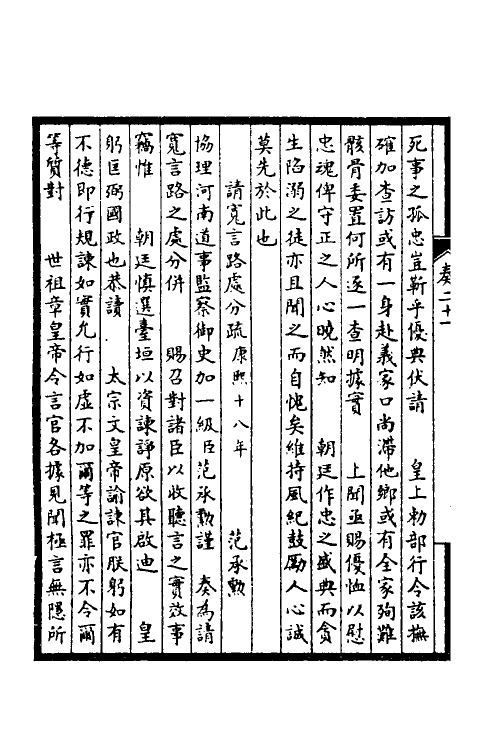 奏二十一
死事之孤忠豈靳乎優典伏請　皇上勅部行令該撫
確加查訪或有一身赴義家口尚滯他鄉或有全家殉難
骸骨委置何所逐一查明據實　上聞亟賜優恤以慰
忠魂俾守正之人心曉然知　朝廷作忠之盛典而貪
生陷溺之徒亦且聞之而自愧矣維持風紀鼓勵人心誠
莫先於此也
請寬言路處分疏康熙十八年　范承勲
協理河南道事監察御史加一級臣范承勲謹　奏為請
寬言路之處分併　賜召對諸臣以收聽言之實效事
竊惟　朝廷慎選臺垣以資諫諍原欲其啟迪　皇
躬匡弼國政也恭讀　太宗文皇帝諭諫官朕躬如有
不德即行規諫如實允行如虛不加爾等之罪亦不令爾
等質對　世祖章皇帝令言官各據見聞極言無隱所